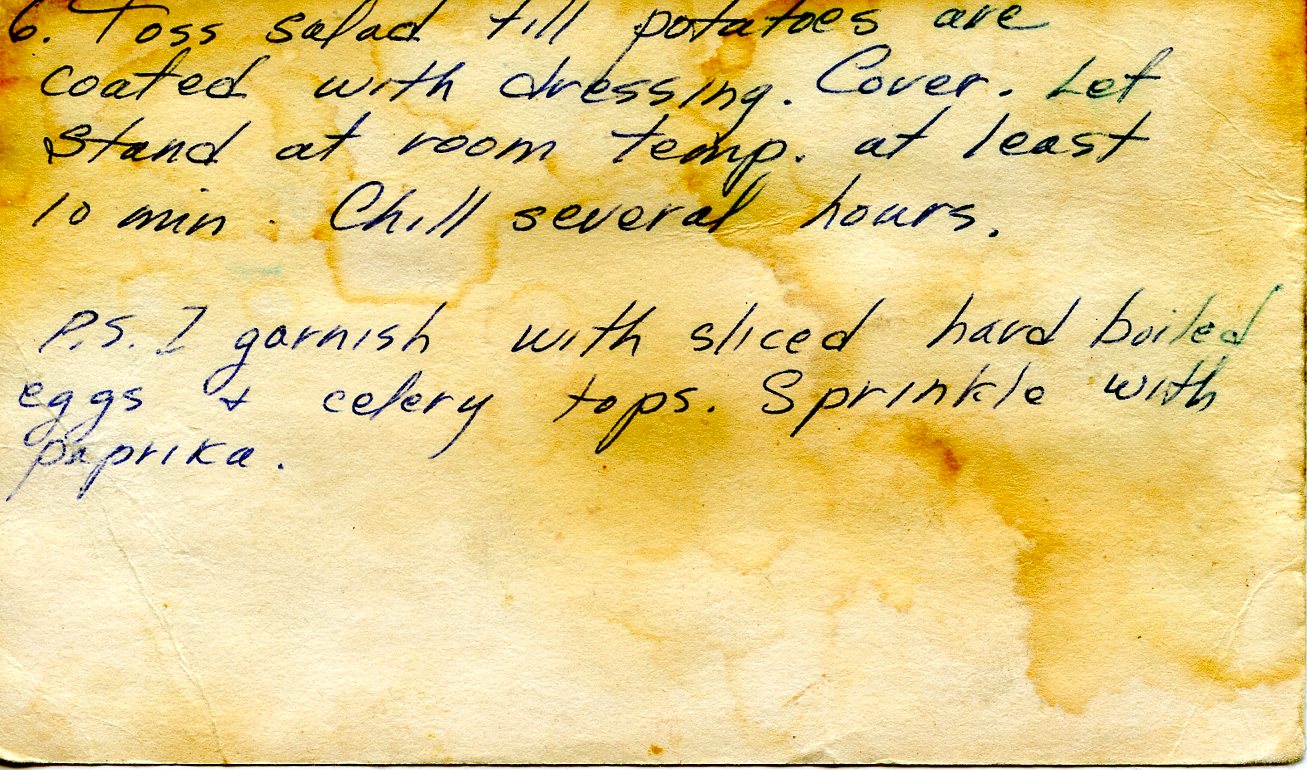 6. Toss salad till potatoes are
coated with dressing. Cover. Let
stand at room temp. at least
10 min. Chill several hours.
P.S. I garnish with sliced hard boiled
eggs + celery tops. Sprinkle with
paprika.